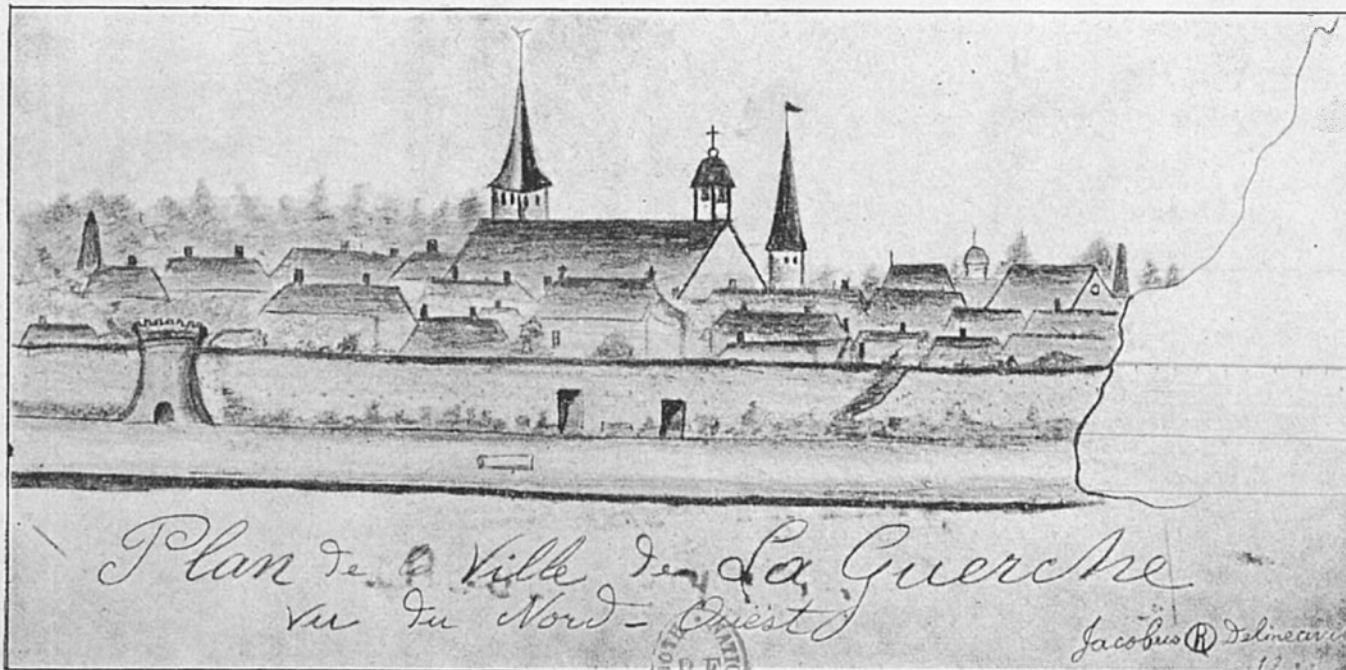 Plan de la Ville de La Guerche
vu du Nord-Ouest
Jacobus R Delineavit